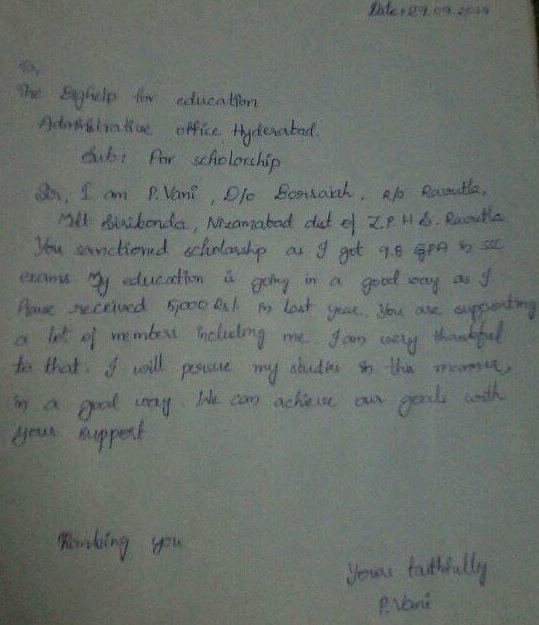 Date: 29.09.2014
To,
The Bighelp for education
Administrative office Hyderabad.
Sub: For scholorship
Sir, I am P. Vani, D/o R/o Raoutla,
Mdl: Sirikonda, Nizamabad dist of Z.P.H.S. Raoutla
You sanctioned scholarship as I got 9.8 GPA in ssc
exams. My education is going in a good way as I
have received 5,000 Rs/. in last year. You are supporting
a lot of members including me. I am very thankful
to that. I will persue my studies in this manner,
in a good way. We can achieve our goals with
your support
Thanking you
Yours faithfully
P. Vani